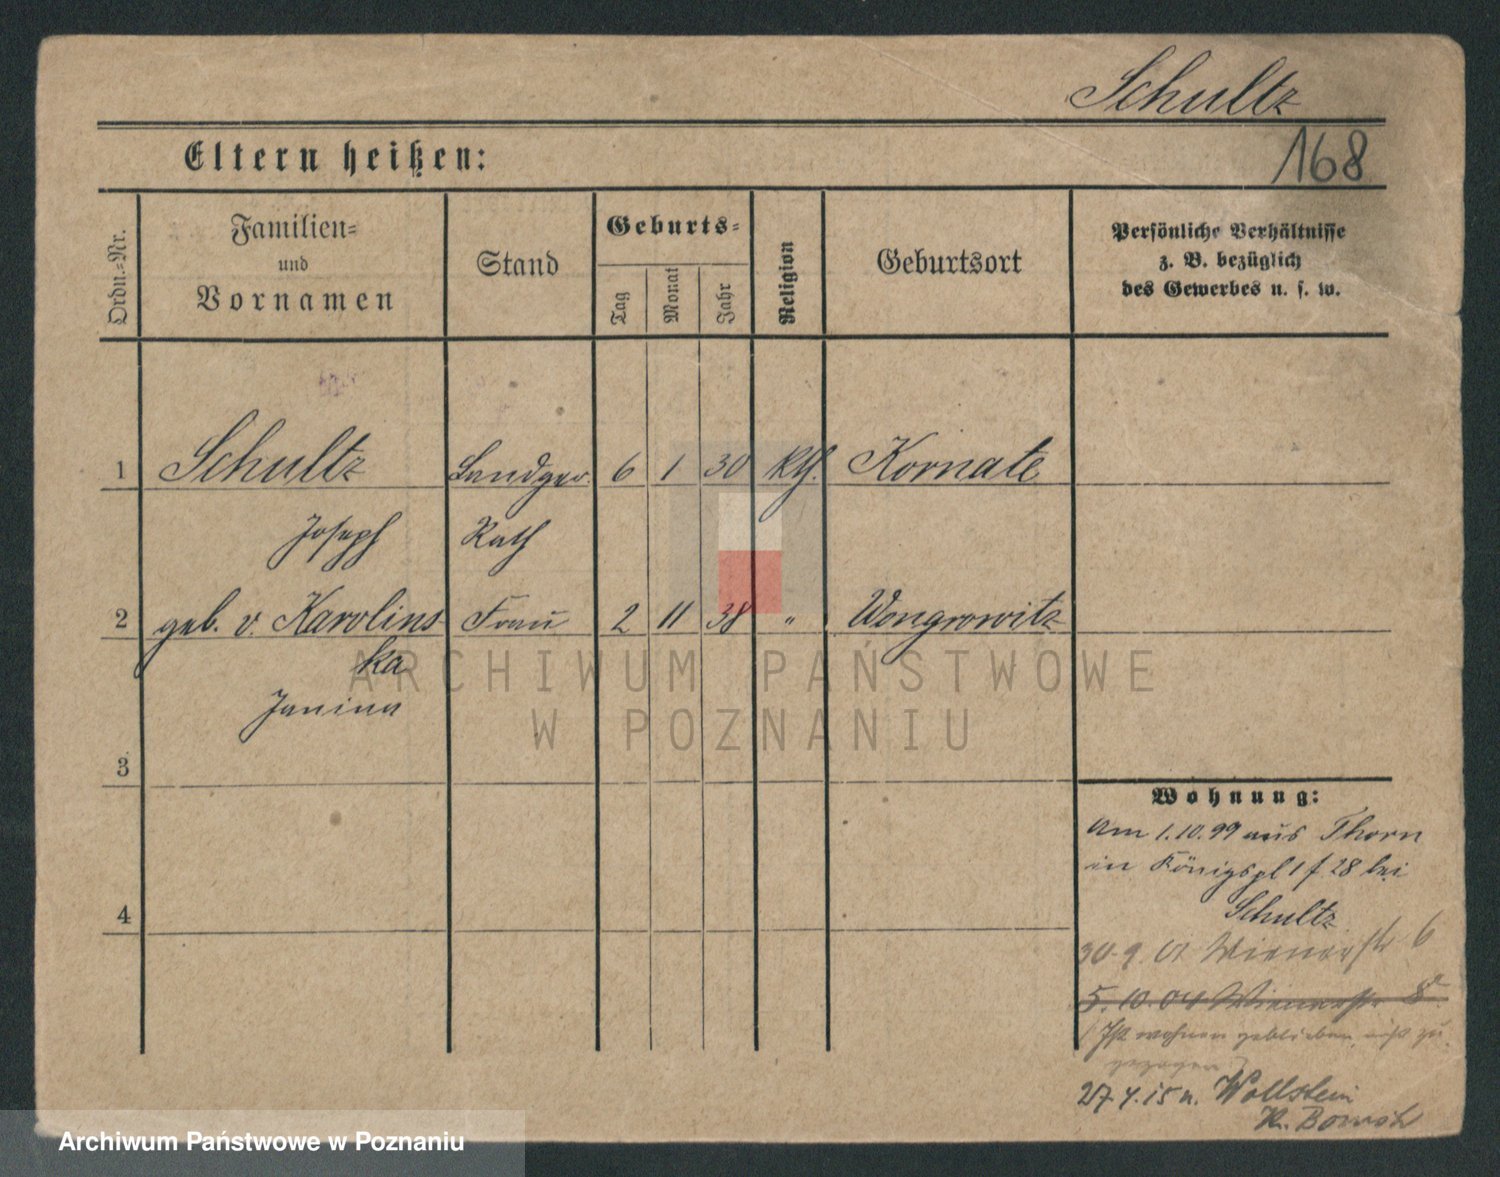 Schultz
168
Eltern heißen:
Ordn.-Nr.
Familien-
und
Vornamen
Stand
Geburts-
Tag
Monat
Jahr
Religion
Geburtsort
Persönliche Verhältnisse
z. B. bezüglich
des Gewerbes u. s. w.
1 Schultz Landger. 6 1 30 kth. Kornate
Joseph Rath
2 geb. v. Karolins Frau 2 11 38 " Wongrowitz
ka
Janina
3
4
Wohnung:
Am 1.10.99 aus Thorn
in Königspl 1 f. 28 bei
Schultz
30.9.01 Wienerstr 6
5.10.04 Wienerstr 8
Ist wohnen geblieben, nicht zu
gezogen
27.4.15 n. Wollstein
Kr. Bomst
ARCHIWUM PAŃSTWOWE
W POZNANIU
Archiwum Państwowe w Poznaniu